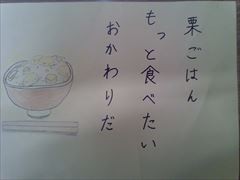 栗ごはん
もっと食べたい
おかわりだ